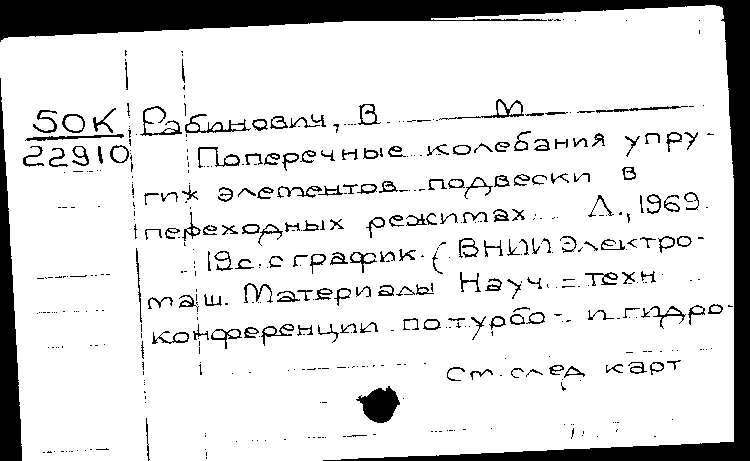 50К Рабинович, В М
22910 Поперечные колебания упру-
гих элементов подвески в
переходных режимах. Л., 1969.
19с. с график. (ВНИИЭлектро-
маш. Материалы Науч.=техн
конференции по турбо- и гидро-
См. след карт